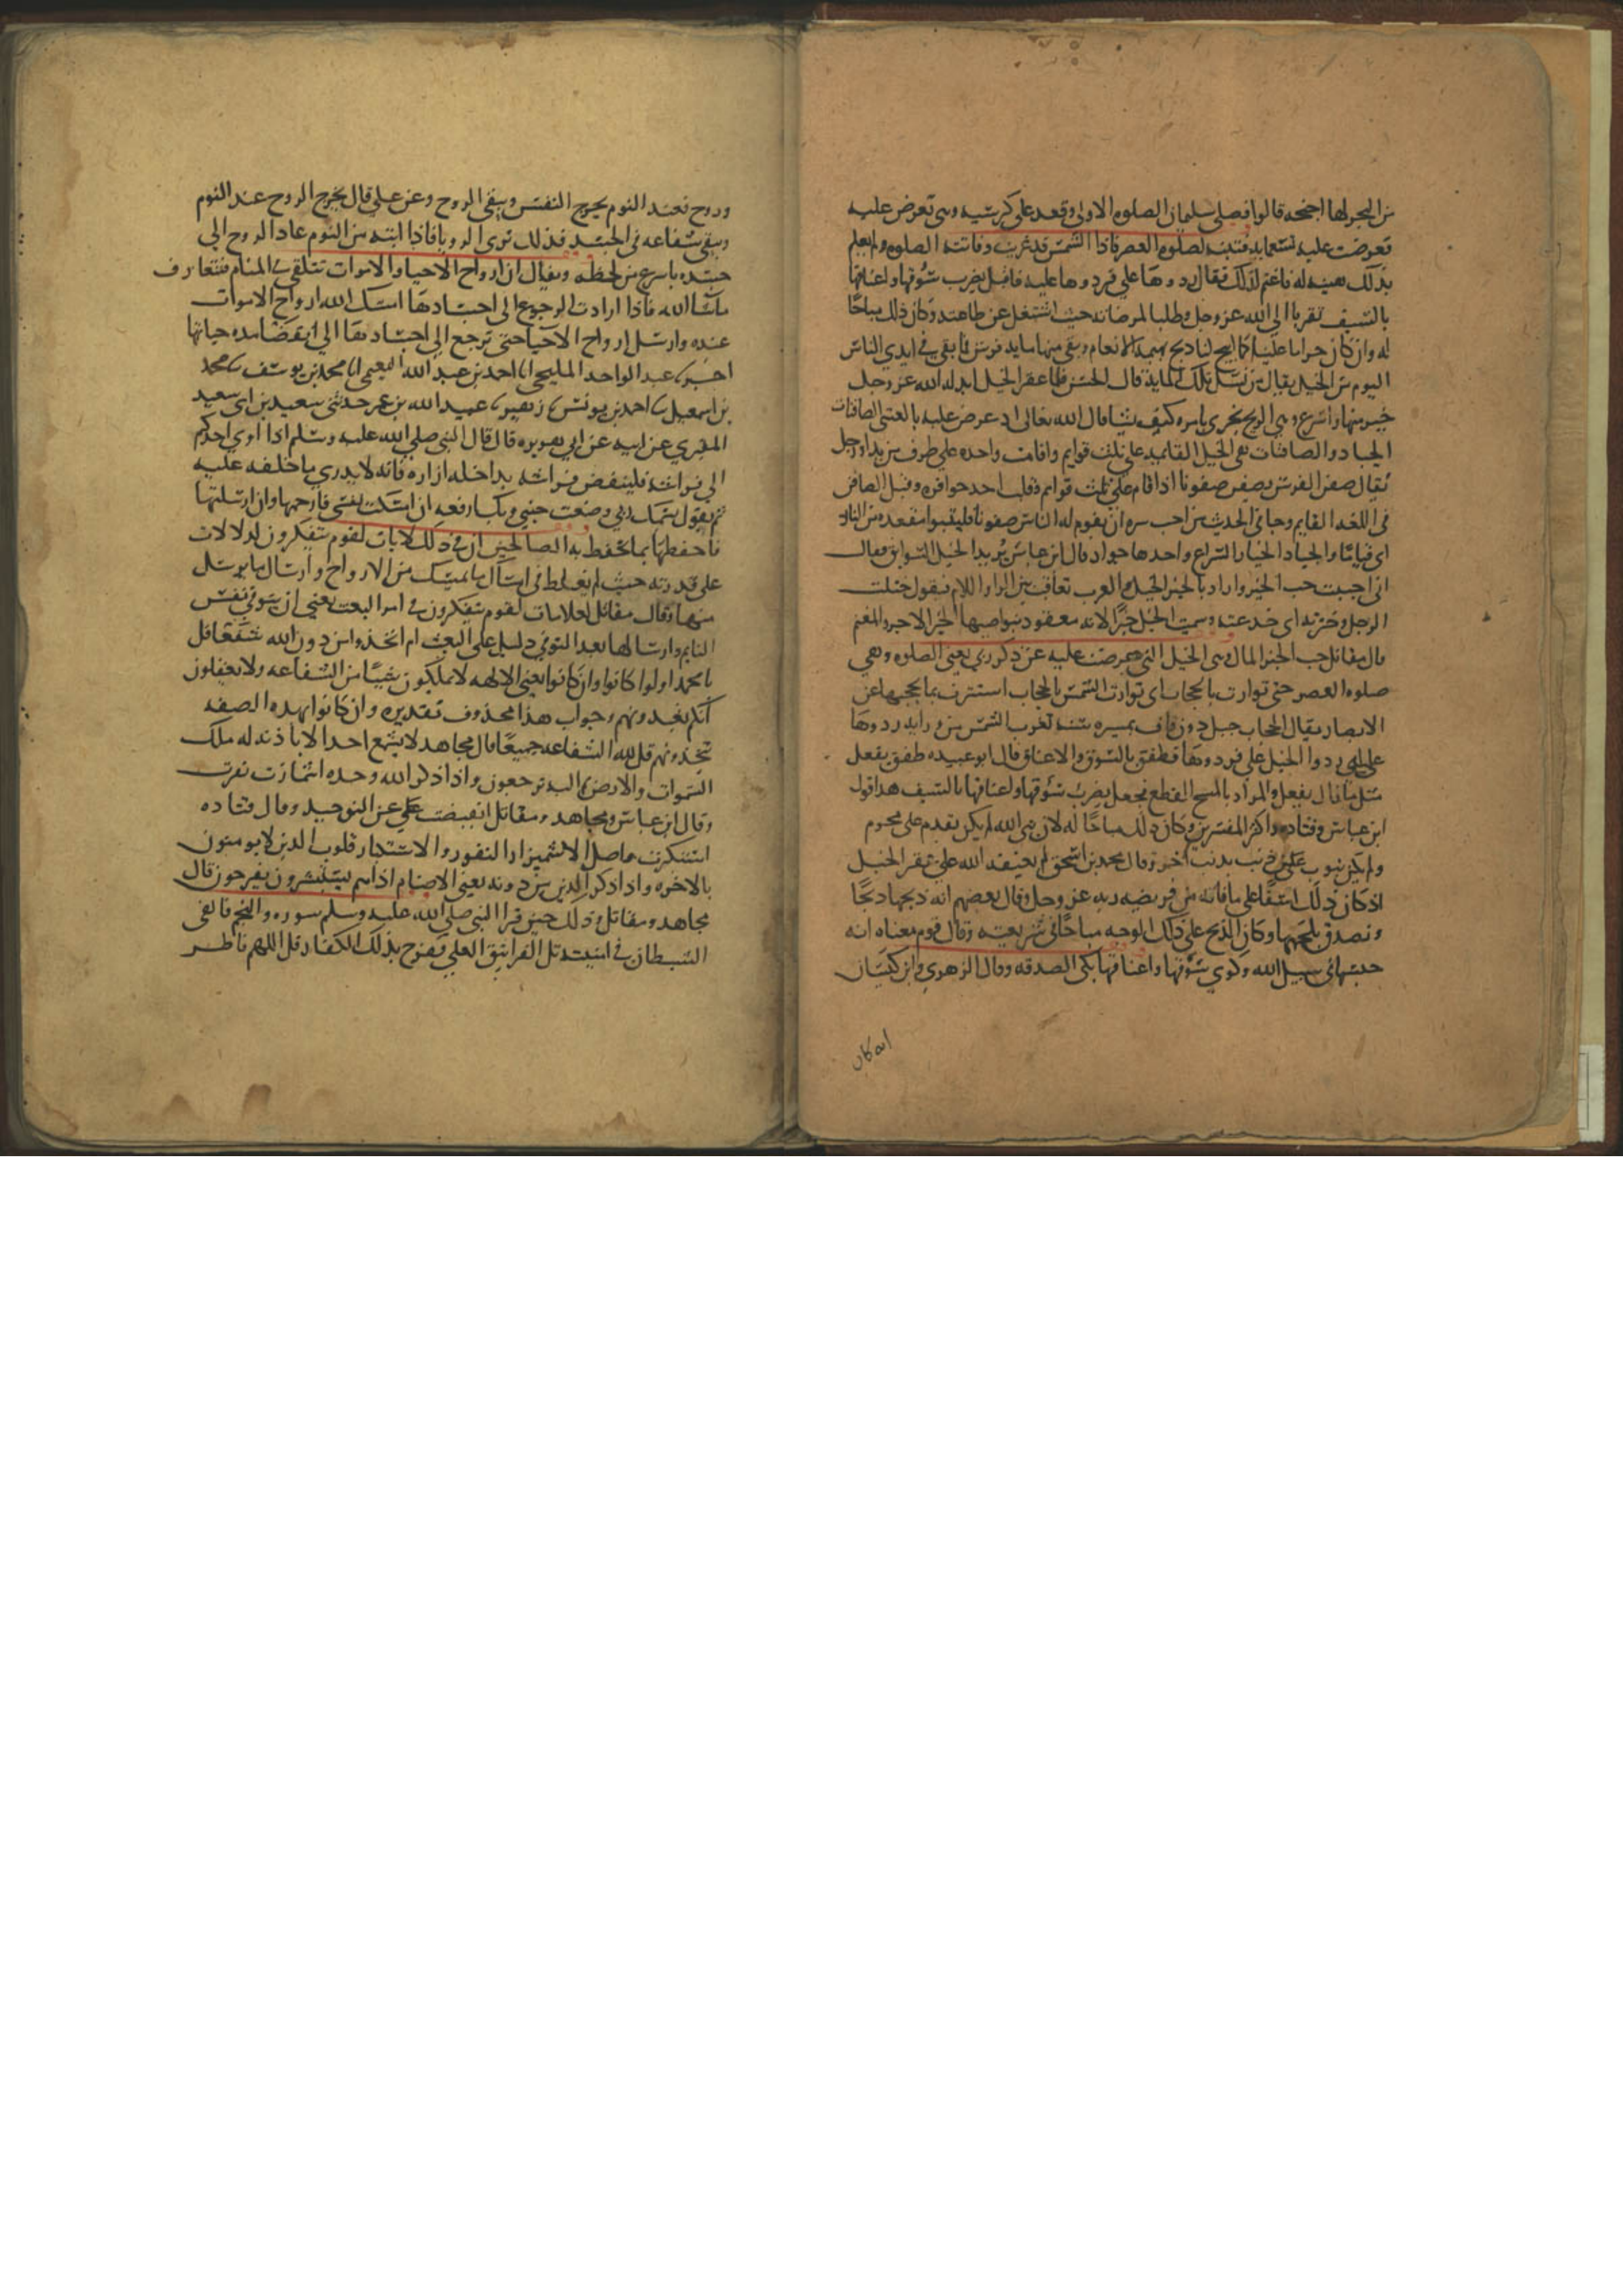 من البحر لها اجنحه قالوا فصلى سليمان الصلوه الاولى وقعد على كرسيه وهي تعرض عليه
فعرضت عليه تسعمايه فتنبه لصلوه العصر فاذا الشمس قد غربت وفاتته الصلوه ولم يعلم
بذلك هيبه له فاغتم لذلك فقال ردوها علي فردوها عليه فاقبل يضرب سوقها واعناقها
بالسيف تقربا الى الله عز وجل وطلبا لمرضاته حيث اشتغل عن طاعته وكان ذلك مباحا
له وان كان حراما علينا كما ابيح لنا ذبح بهيمه الانعام وبقي منها مايه فرس فما بقي في ايدي الناس
اليوم من الخيل يقال من نسل تلك المايه قال الحسن فلما عقر الخيل ابدله الله عز وجل
خيرا منها واسرع وهي الريح تجري بامره كيف يشا قال الله تعالى اذ عرض عليه بالعشي الصافنات
الجياد والصافنات هي الخيل القايمه على ثلث قوايم واقامت واحده على طرف من يد او رجل
يقال صفن الفرس يصفن صفونا اذا قام على ثلث قوايم وقلب احد حوافره وقيل الصافن
في اللغه القايم وجا في الحديث من احب سره ان يقوم له الناس صفونا فليتبوا مقعده من النار
اي قياما والجياد الخيار السراع واحدها جواد قال ابن عباس يريد الخيل السوابق فقال
اني احببت حب الخير واراد بالخير الخيل والعرب تعاقب بين الرا واللام فيقول ختلت
الرجل وخترته اي خدعته وسميت الخيل خيرا لانه معقود بنواصيها الخير الاجر والمغنم
قال مقاتل حب الخير المال وهي الخيل التي عرضت عليه عن ذكر ربي يعني الصلوه وهي
صلوه العصر حتى توارت بالحجاب اي توارت الشمس بالحجاب استترت بما يحجبها عن
الابصار يقال الحجاب جبل دون قاف بمسيره سنه تغرب الشمس من ورايه ردوها
علي اي ردوا الخيل علي فردوها فطفق بالسوق والاعناق قال ابو عبيده طفق يفعل
مثل ما زال يفعل والمراد بالمسح القطع فجعل يضرب سوقها واعناقها بالسيف هذا قول
ابن عباس وقتاده واكثر المفسرين وكان ذلك مباحا له لان نبي الله لم يكن يقدم على محرم
ولم يكن يتوب عن ذنب بذنب اخر وقال محمد بن اسحق لم يعنفه الله على عقر الخيل
اذ كان ذلك اسفا على ما فاته من فريضه ربه عز وجل وقال بعضهم انه ذبحها ذبحا
وتصدق بلحمها وكان الذبح على ذلك الوجه مباحا في شريعته وقال قوم معناه انه
حبسها في سبيل الله وكوى سوقها واعناقها بكي الصدقه وقال الزهري وابن كيسان
انه كان
وروح فعند النوم يخرج النفس ويبقى الروح وعن علي قال يخرج الروح عند النوم
ويبقى شعاعه في الجسد فبذلك ترى الرويا فاذا انتبه من النوم عاد الروح الى
جسده باسرع من لحظه ويقال ان ارواح الاحيا والاموات تتلقي في المنام فتتعارف
ما شا الله فاذا ارادت الرجوع الى اجسادها امسك الله ارواح الاموات
عنده وارسل ارواح الاحيا حتى ترجع الى اجسادها الى انقضا مده حياتها
اخبرنا عبد الواحد المليحي انا احمد بن عبد الله النعيمي انا محمد بن يوسف نا محمد
بن اسمعيل نا احمد بن يونس نا زهير نا عبيد الله بن عمر حدثني سعيد بن ابي سعيد
المقبري عن ابيه عن ابي هريره قال قال النبي صلى الله عليه وسلم اذا اوى احدكم
الى فراشه فلينفض فراشه بداخله ازاره فانه لا يدري ما خلفه عليه
ثم يقول باسمك ربي وضعت جنبي وبك ارفعه ان امسكت نفسي فارحمها وان ارسلتها
فاحفظها بما تحفظ به الصالحين ان في ذلك لايات لقوم يتفكرون لدلالات
على قدرته حيث لم يغلط في امساك ما يمسك من الارواح وارسال ما يرسل
منها وقال مقاتل لعلامات لقوم يتفكرون في امر البعث يعني ان توفي نفس
النايم وارسالها بعد التوفي دليل على البعث ام اتخذوا من دون الله شفعا قل
يا محمد اولوا كانوا وان كانوا يعني الالهه لا يملكون شيئا من الشفاعه ولا يعقلون
انكم تعبدونهم وجواب هذا محذوف تقديره وان كانوا بهذه الصفه
تتخذونهم قل لله الشفاعه جميعا قال مجاهد لا يشفع احد الا باذنه له ملك
السموات والارض ثم اليه ترجعون واذا ذكر الله وحده اشمازت نفرت
وقال ابن عباس ومجاهد ومقاتل انقبضت عن التوحيد وقال قتاده
استكبرت واصل الاشميزاز النفور والاستكبار قلوب الذين لا يومنون
بالاخره واذا ذكر الذين من دونه يعني الاصنام اذا هم يستبشرون يفرحون قال
مجاهد ومقاتل وذلك حين قرا النبي صلى الله عليه وسلم سوره والنجم فالقى
الشيطان في امنيته تلك الغرانيق العلى ففرح بذلك الكفار قل اللهم فاطر